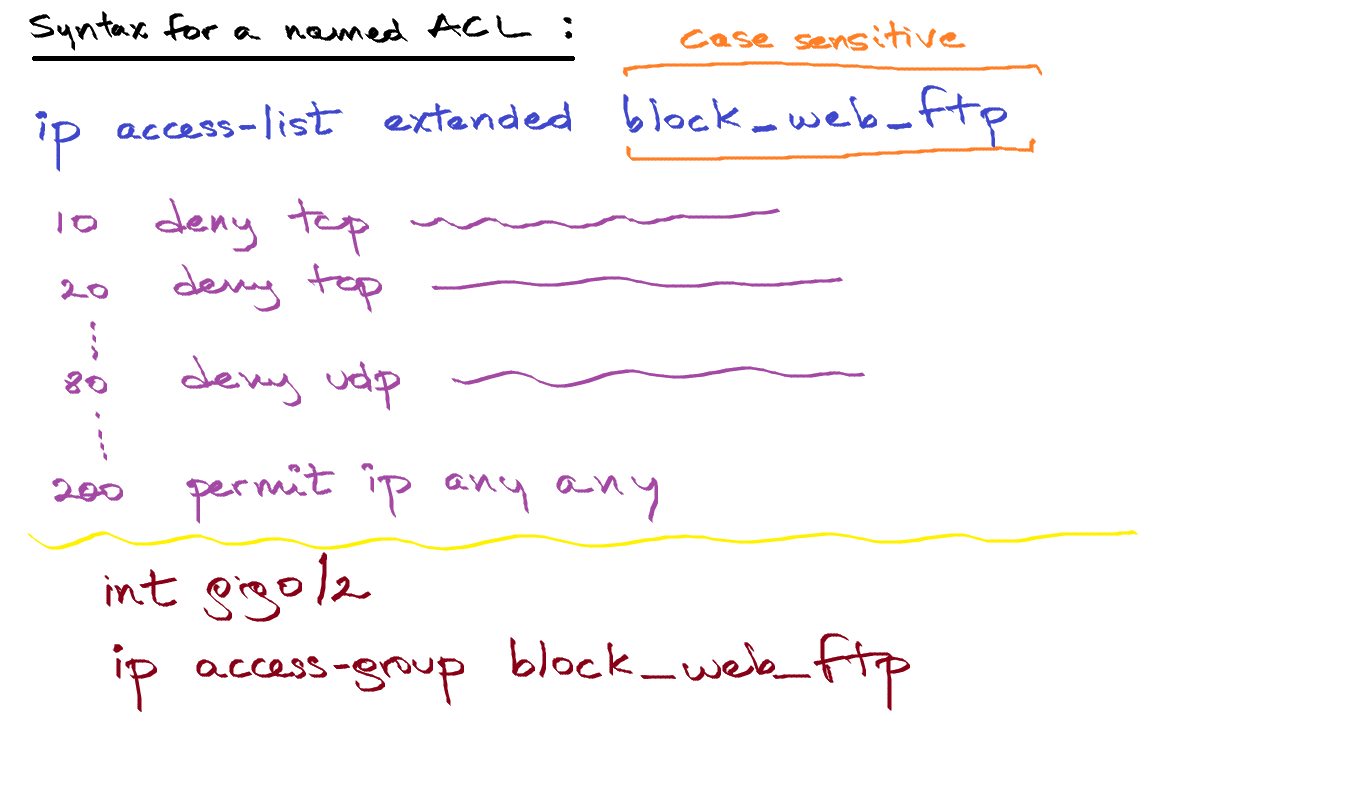 Syntax for a named ACL :
case sensitive
ip access-list extended block_web_ftp
10 deny tcp
20 deny tcp
80 deny udp
200 permit ip any any
int gig0/2
ip access-group block_web_ftp